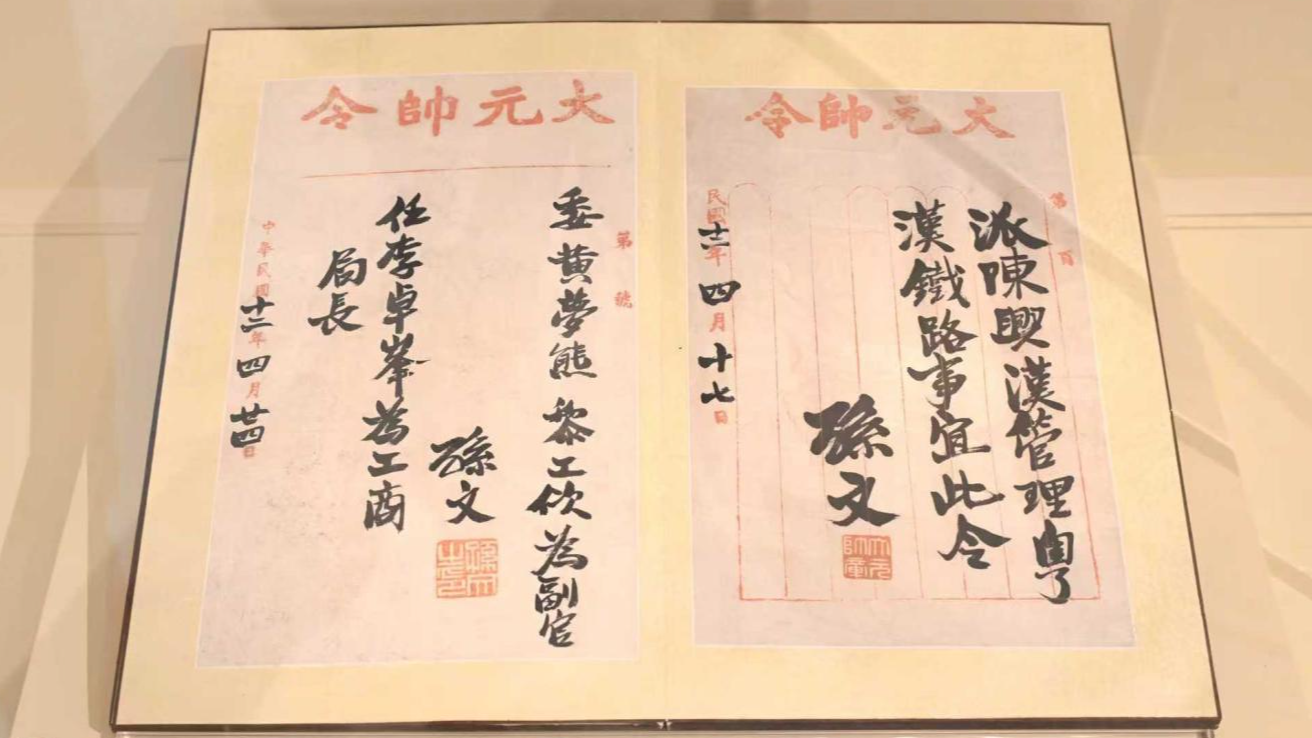 大元帥令
第
派陳興漢管理粵
漢鐵路事宜此令
孫文
大元帥章
民國十二年四月十七日
大元帥令
第 號
委黃夢熊 黎工佽為副官
孫文
孫文之印
任李卓峯為工商
局長
中華民國十二年四月廿四日